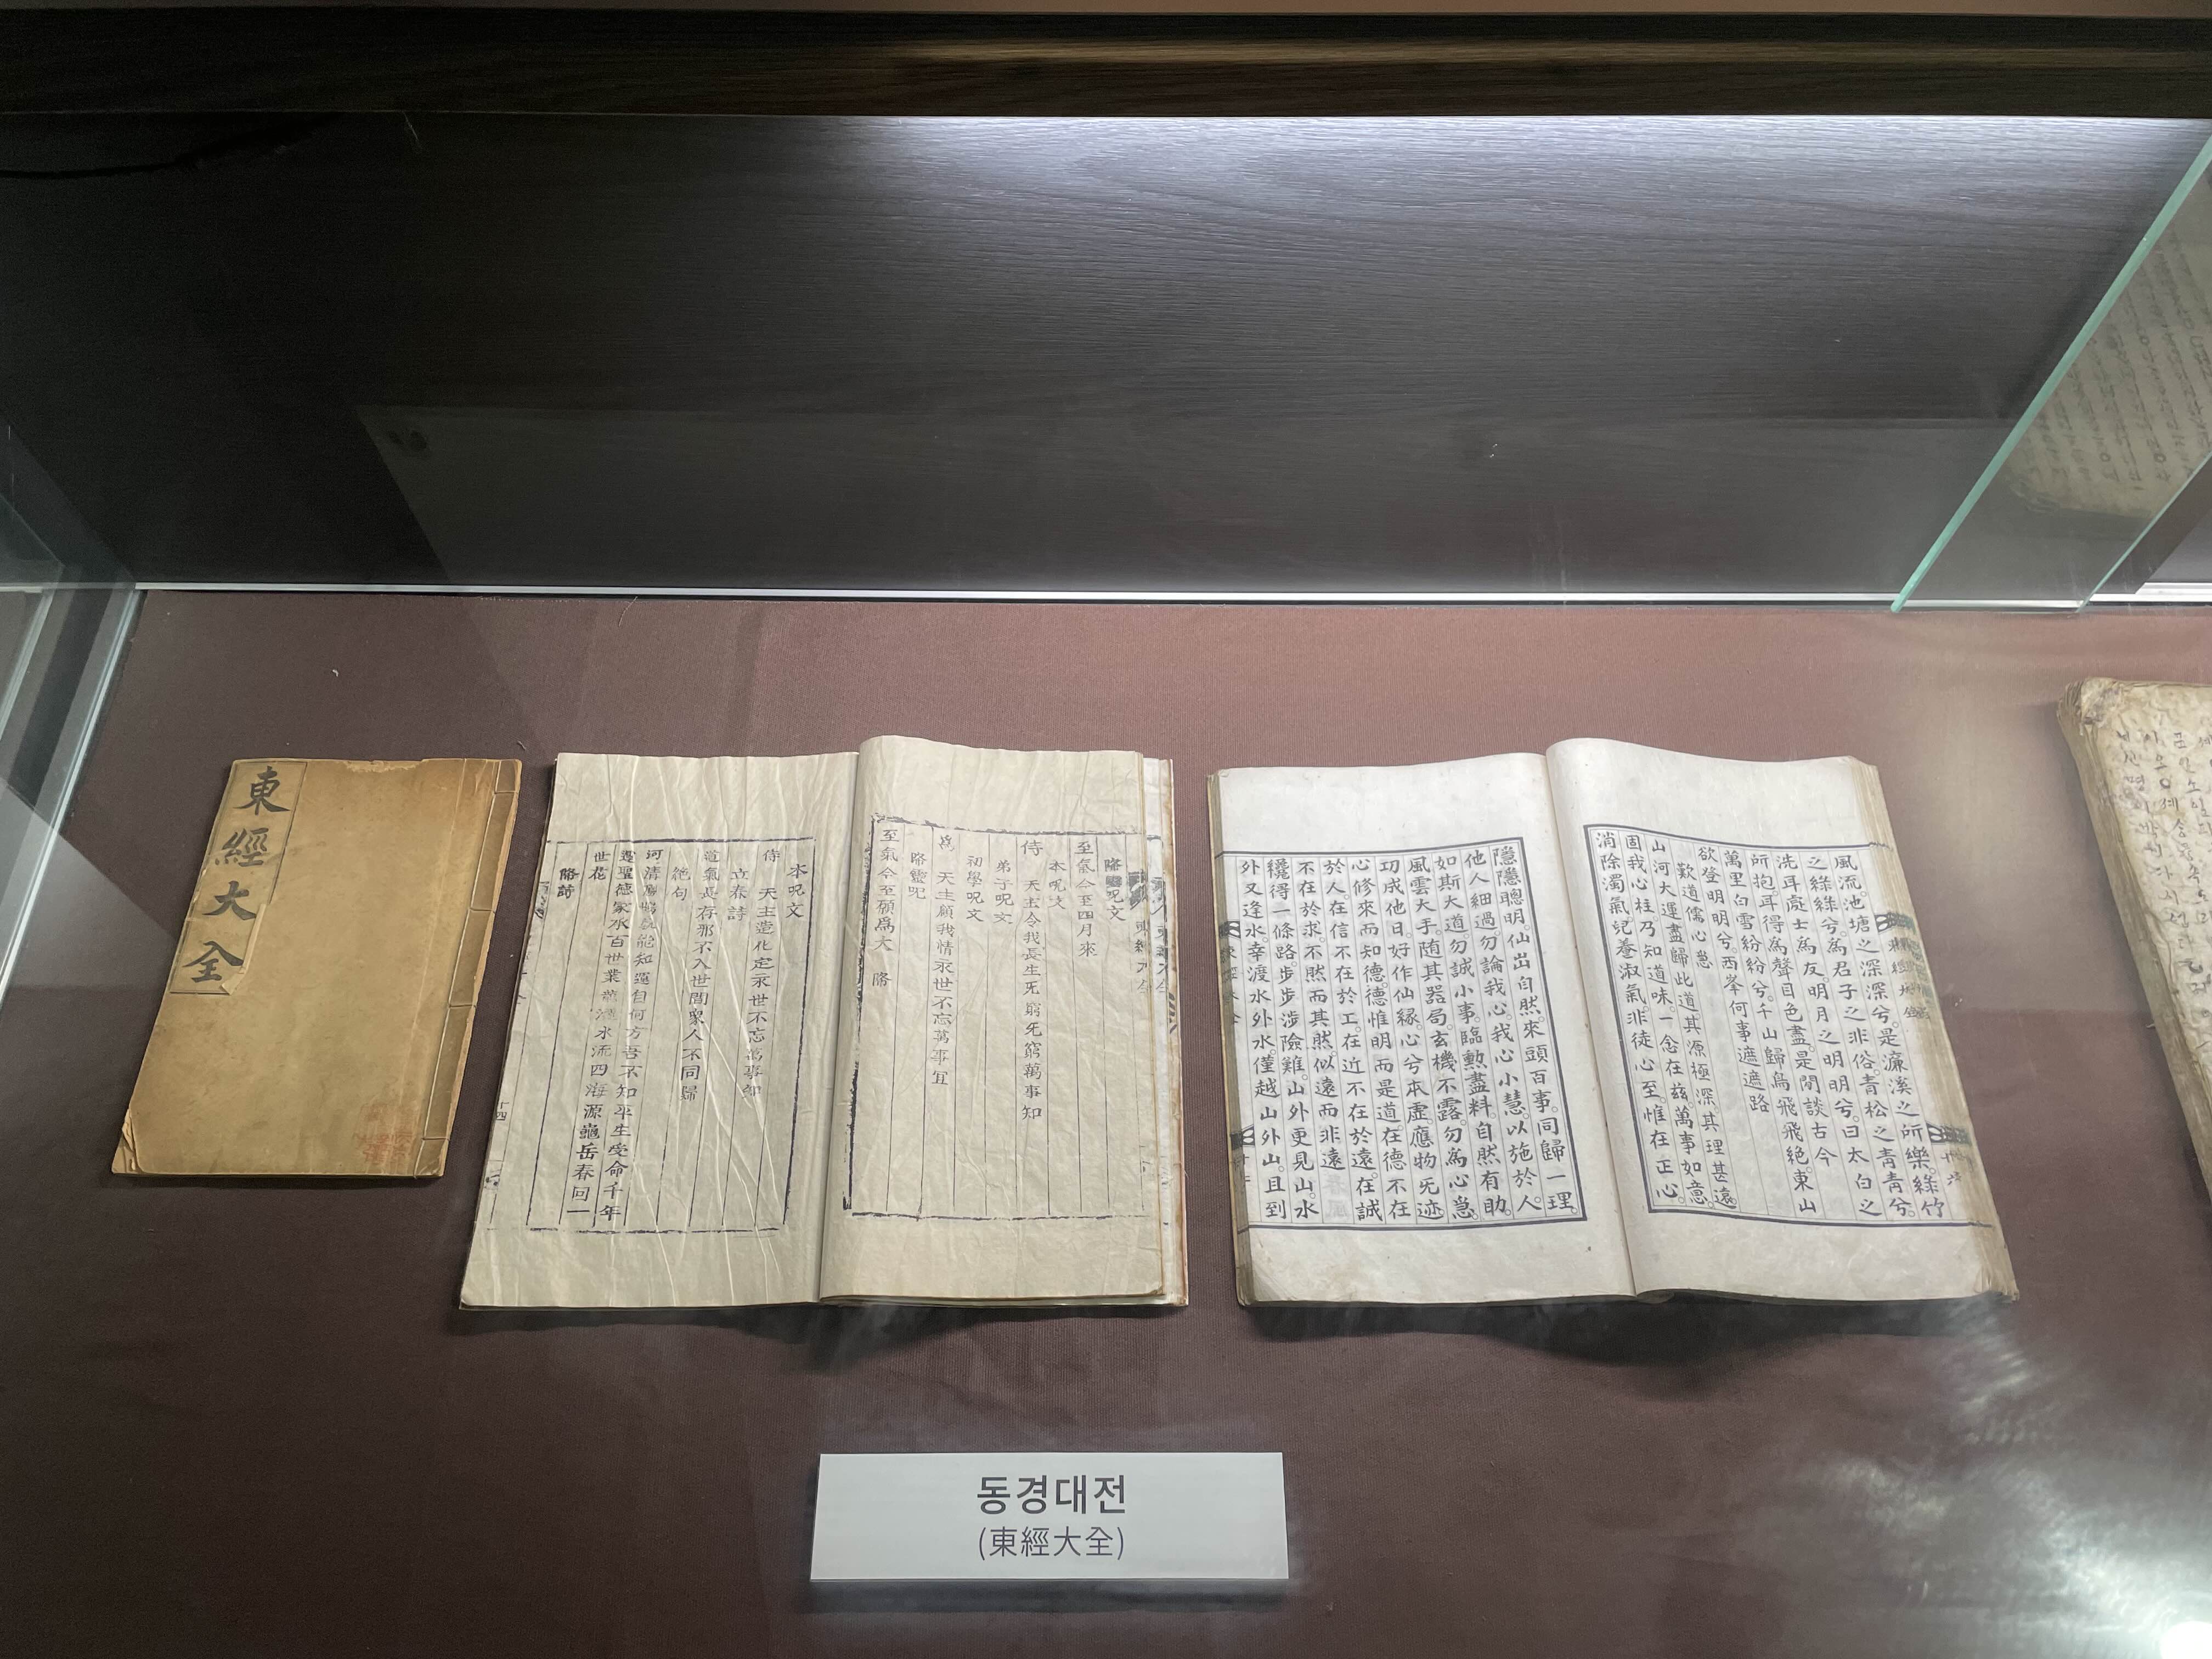 東經大全
降靈呪文
至氣今至四月來
本呪文
侍 天主令我長生无窮无窮萬事知
弟子呪文
初學呪文
爲 天主顧我情永世不忘萬事宜
降靈呪
至氣今至願爲大 降
本呪文
侍 天主造化定永世不忘萬事知
立春詩
道氣長存邪不入世間衆人不同歸
絶句
河清鳳鳴孰能知運自何方吾不知平生受命千年
運聖德家承百世業龍潭水流四海源龜岳春回一
世花
降詩
十四
風流。池塘之深深兮。是濂溪之所樂。綠竹
之綠綠兮。爲君子之非俗。青松之青青兮。
洗耳處士爲友。明月之明明兮。曰太白之
所抱。耳得爲聲目色盡。是閒談古今
萬里白雪紛紛兮。千山歸鳥飛飛絕。東山
欲登明明兮。西峯何事遮遮路
歎道儒心急
山河大運盡歸此道其源極深其理甚遠
固我心柱。乃知道味。一念在茲。萬事如意。
消除濁氣。兒養淑氣。非徒心至。惟在正心。
隱隱聰明。仙出自然。來頭百事。同歸一理。
他人細過。勿論我心。我心小慧。以施於人。
如斯大道勿誠小事。臨勳盡料。自然有助。
風雲大手。随其器局。玄機不露。勿爲心急。
功成他日。好作仙緣。心兮本虛。應物无迹
心修來而知德。德惟明而是道。在德不在
於人。在信不在於工。在近不在於遠。在誠
不在於求。不然而其然。似遠而非遠
纔得一條路。步步涉險難。山外更見山。水
外又逢水。幸渡水外水。僅越山外山。且到
동경대전
(東經大全)